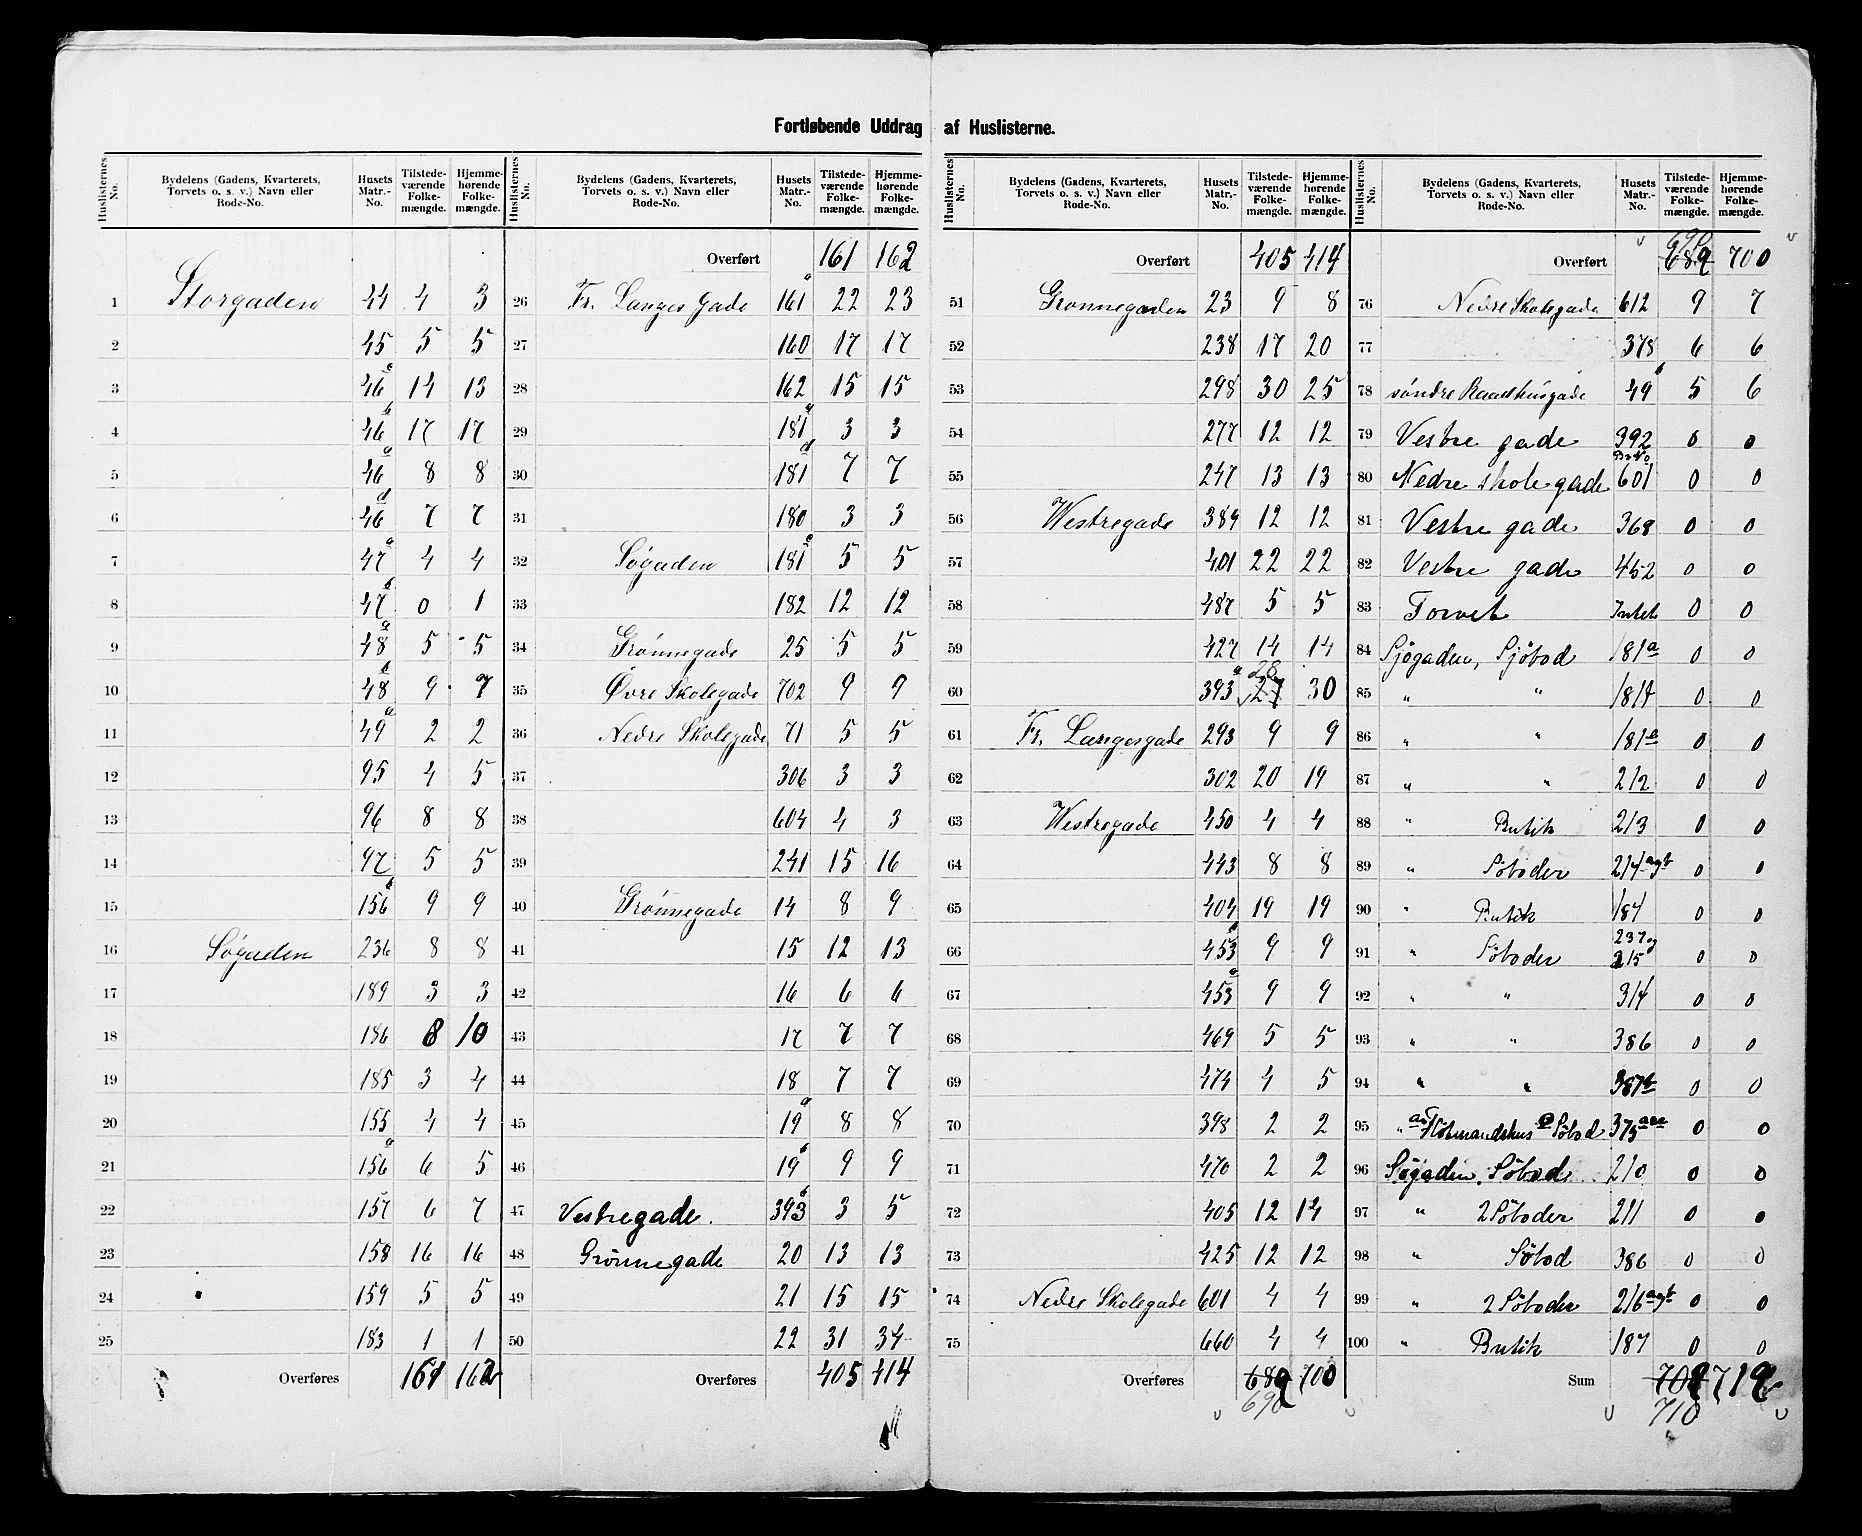 Fortløbende Uddrag af Huslisterne.
Huslisternes No. | Bydelens (Gadens, Kvarterets, Torvets o. s. v.) Navn eller Rode-No. | Husets Matr.-No. | Tilstedeværende Folkemængde. | Hjemmehørende Folkemængde.
1 Storgaden 44 4 3
2 45 5 5
3 46 c 14 13
4 46 b 17 17
5 46 a 8 8
6 46 d 7 7
7 47 a 4 4
8 47 b 0 1
9 48 a 5 5
10 48 b 9 7
11 49 a 2 2
12 95 4 5
13 96 8 8
14 97 5 5
15 156 b 9 9
16 Søgaden 236 8 8
17 189 3 3
18 186 8 10
19 185 3 4
20 155 4 4
21 156 a 6 5
22 157 6 7
23 158 16 16
24 159 5 5
25 183 1 1
Overføres 161 162
Huslisternes No. | Bydelens (Gadens, Kvarterets, Torvets o. s. v.) Navn eller Rode-No. | Husets Matr.-No. | Tilstedeværende Folkemængde. | Hjemmehørende Folkemængde.
Overført 161 162
26 Fr. Langes Gade 161 a 22 23
27 160 17 17
28 162 15 15
29 181 a 3 3
30 181 d 7 7
31 180 3 3
32 Søgaden 181 c 5 5
33 182 12 12
34 Grønnegade 25 5 5
35 Øvre Skolegade 702 9 9
36 Nedre Skolegade 71 5 5
37 306 3 3
38 604 4 3
39 241 15 16
40 Grønnegade 14 8 9
41 15 12 13
42 16 6 6
43 17 7 7
44 18 7 7
45 19 a 8 8
46 19 b 9 9
47 Vestregade. 393 b 3 5
48 Grønnegade 20 13 13
49 21 15 15
50 22 31 34
Overføres 405 414
Huslisternes No. | Bydelens (Gadens, Kvarterets, Torvets o. s. v.) Navn eller Rode-No. | Husets Matr.-No. | Tilstedeværende Folkemængde. | Hjemmehørende Folkemængde.
Overført 405 414
51 Grønnegaden 23 9 8
52 238 17 20
53 298 30 25
54 277 12 12
55 247 13 13
56 Westregade 389 12 12
57 401 22 22
58 487 5 5
59 427 14 14
60 393 a 27 28 30
61 Fr. Langesgade 293 9 9
62 302 20 19
63 Westregade 450 4 4
64 443 8 8
65 404 19 19
66 453 b 9 9
67 453 a 9 9
68 469 5 5
69 474 4 5
70 398 2 2
71 470 2 2
72 405 12 14
73 425 12 12
74 Nedre Skolegade 601 4 4
75 660 4 4
Overføres 689 700
690
Huslisternes No. | Bydelens (Gadens, Kvarterets, Torvets o. s. v.) Navn eller Rode-No. | Husets Matr.-No. | Tilstedeværende Folkemængde. | Hjemmehørende Folkemængde.
690
Overført 689 700
76 Nedre Skolegade 612 9 7
77 378 6 6
78 søndre Raadhusgade 49 b 5 6
79 Vestre gade 392 0 0
80 Nedre skole gade 601 0 0
81 Vestre gade 368 0 0
82 Vestre gade 452 0 0
83 Torvet Intet 0 0
84 Sjøgaden, Sjöbod 181 a 0 0
85 " " 181 f 0 0
86 " " 181 e 0 0
87 " " 212 0 0
88 " Butik 213 0 0
89 " Söboder 214 a g b 0 0
90 " Butik 184 0 0
91 " Söboder 237 og 215 0 0
92 " " 314 0 0
93 " " 386 0 0
94 " " 387 b 0 0
95 " Söbod 375 0 0
96 Søgaden, Söbod 210 0 0
97 " 2 Söboder 211 0 0
98 " Söbod 386 0 0
99 " 2 Söboder 216 a g b 0 0
100 " Butik 187 0 0
Sum 709 719
710